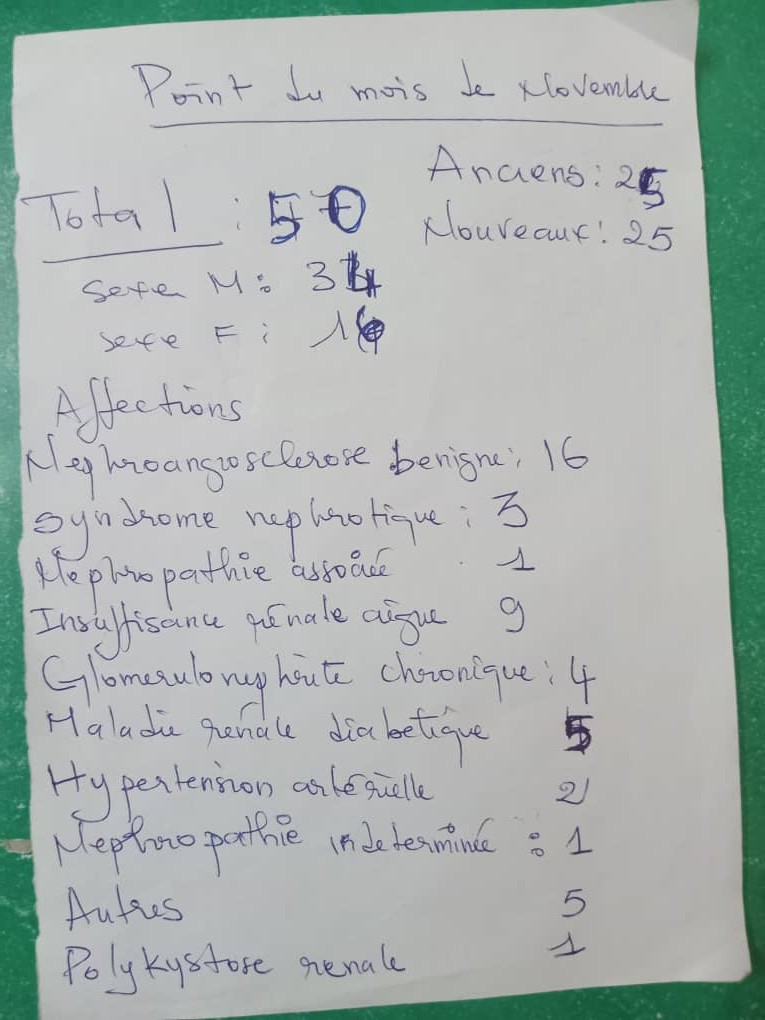 Point du mois de Novembre
Anciens : 25
Total : 50
Nouveaux : 25
Sexe M : 34
Sexe F : 16
Affections
Nephroangiosclerose benigne : 16
Syndrome nephrotique : 3
Nephropathie associée 1
Insuffisance rénale aigue 9
Glomerulonephrite chronique : 4
Maladie rénale diabetique 5
Hypertension artérielle 2
Nephropathie indeterminée : 1
Autres 5
Polykystose renale 1